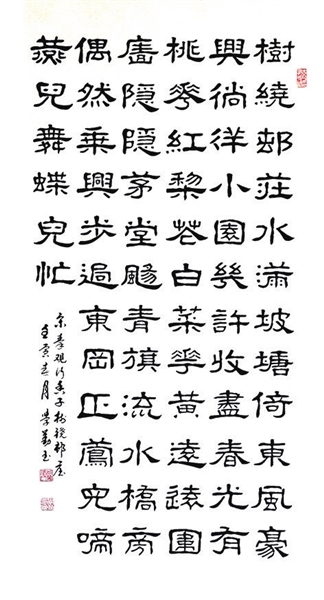 樹繞邨莊水滿坡塘倚東風豪
興徜徉小園幾許收盡春光有
桃華紅黎花白菜華黃遠遠圍
廧隱隱茅堂颺青旗流水橋旁
偶然乗興步過東岡正鶯兒啼
燕兒舞蝶兒忙
宋秦觀行香子樹繞邨莊
壬寅春月學義書